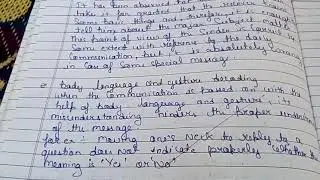 It has been observed that
take it for granted that the receiver knows
some basic things and therefore it is enough
tell him about the major subject matter
This point of view of the sender is correct to
some extent with reference to the day
communication, but it is absolutely wrong
in case of some special message
• Body language and gesture decoding
when the communication is based on with the
help of body language and gesture, its
misunderstanding hinders the proper understanding
of the message.
for ex: moving one's neck to reply to a
question does not indicate properly whether the
meaning is 'Yes' or 'No'